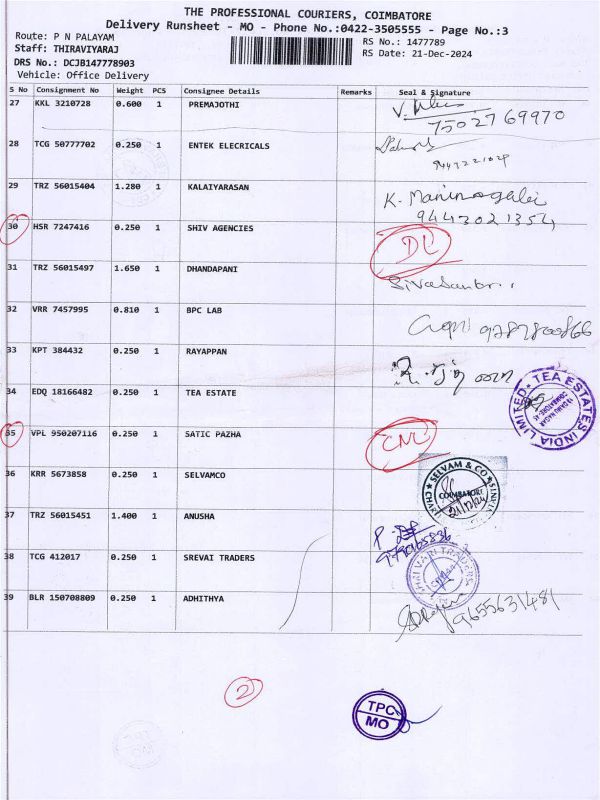 THE PROFESSIONAL COURIERS, COIMBATORE
Delivery Runsheet - MO - Phone No.:0422-3505555 - Page No.:3
Route: P N PALAYAM
RS No.: 1477789
Staff: THIRAVIYARAJ
RS Date: 21-Dec-2024
DRS No.: DCJB147778903
Vehicle: Office Delivery
S No Consignment No Weight PCS Consignee Details Remarks Seal & Signature
27 KKL 3210728 0.600 1 PREMAJOTHI
75027 69970
28 TCG 50777702 0.250 1 ENTEK ELECRICALS
29 TRZ 56015404 1.280 1 KALAIYARASAN
9443021354
30 HSR 7247416 0.250 1 SHIV AGENCIES DL
31 TRZ 56015497 1.650 1 DHANDAPANI
32 VRR 7457995 0.810 1 BPC LAB
33 KPT 384432 0.250 1 RAYAPPAN
34 EDQ 18166482 0.250 1 TEA ESTATE
TEA ESTATES INDIA LIMITED
35 VPL 950207116 0.250 1 SATIC PAZHA
36 KRR 5673858 0.250 1 SELVAMCO
SELVAM & CO
COIMBATORE
37 TRZ 56015451 1.400 1 ANUSHA
38 TCG 412017 0.250 1 SREVAI TRADERS
39 BLR 150708809 0.250 1 ADHITHYA
9655631481
2
TPC
MO